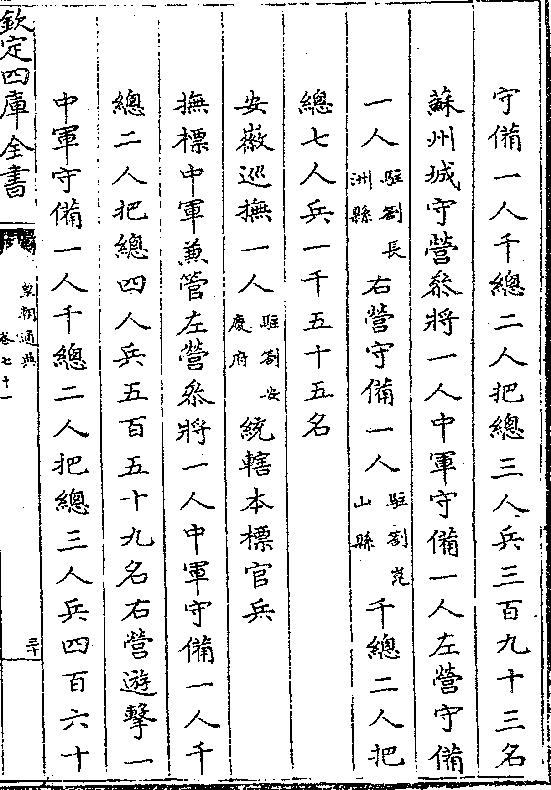 守備一人千總二人把總三人兵三百九十三名
蘇州城守營叅將一人中軍守備一人左營守備
一人駐劄長洲縣右營守備一人駐劄崑山縣千總二人把
總七人兵一千五十五名
安徽巡撫一人駐劄安慶府統轄本標官兵
撫標中軍兼管左營叅將一人中軍守備一人千
總二人把總四人兵五百五十九名右營遊擊一
中軍守備一人千總二人把總三人兵四百六十
欽定四庫全書
皇朝通典
卷七十一
三十